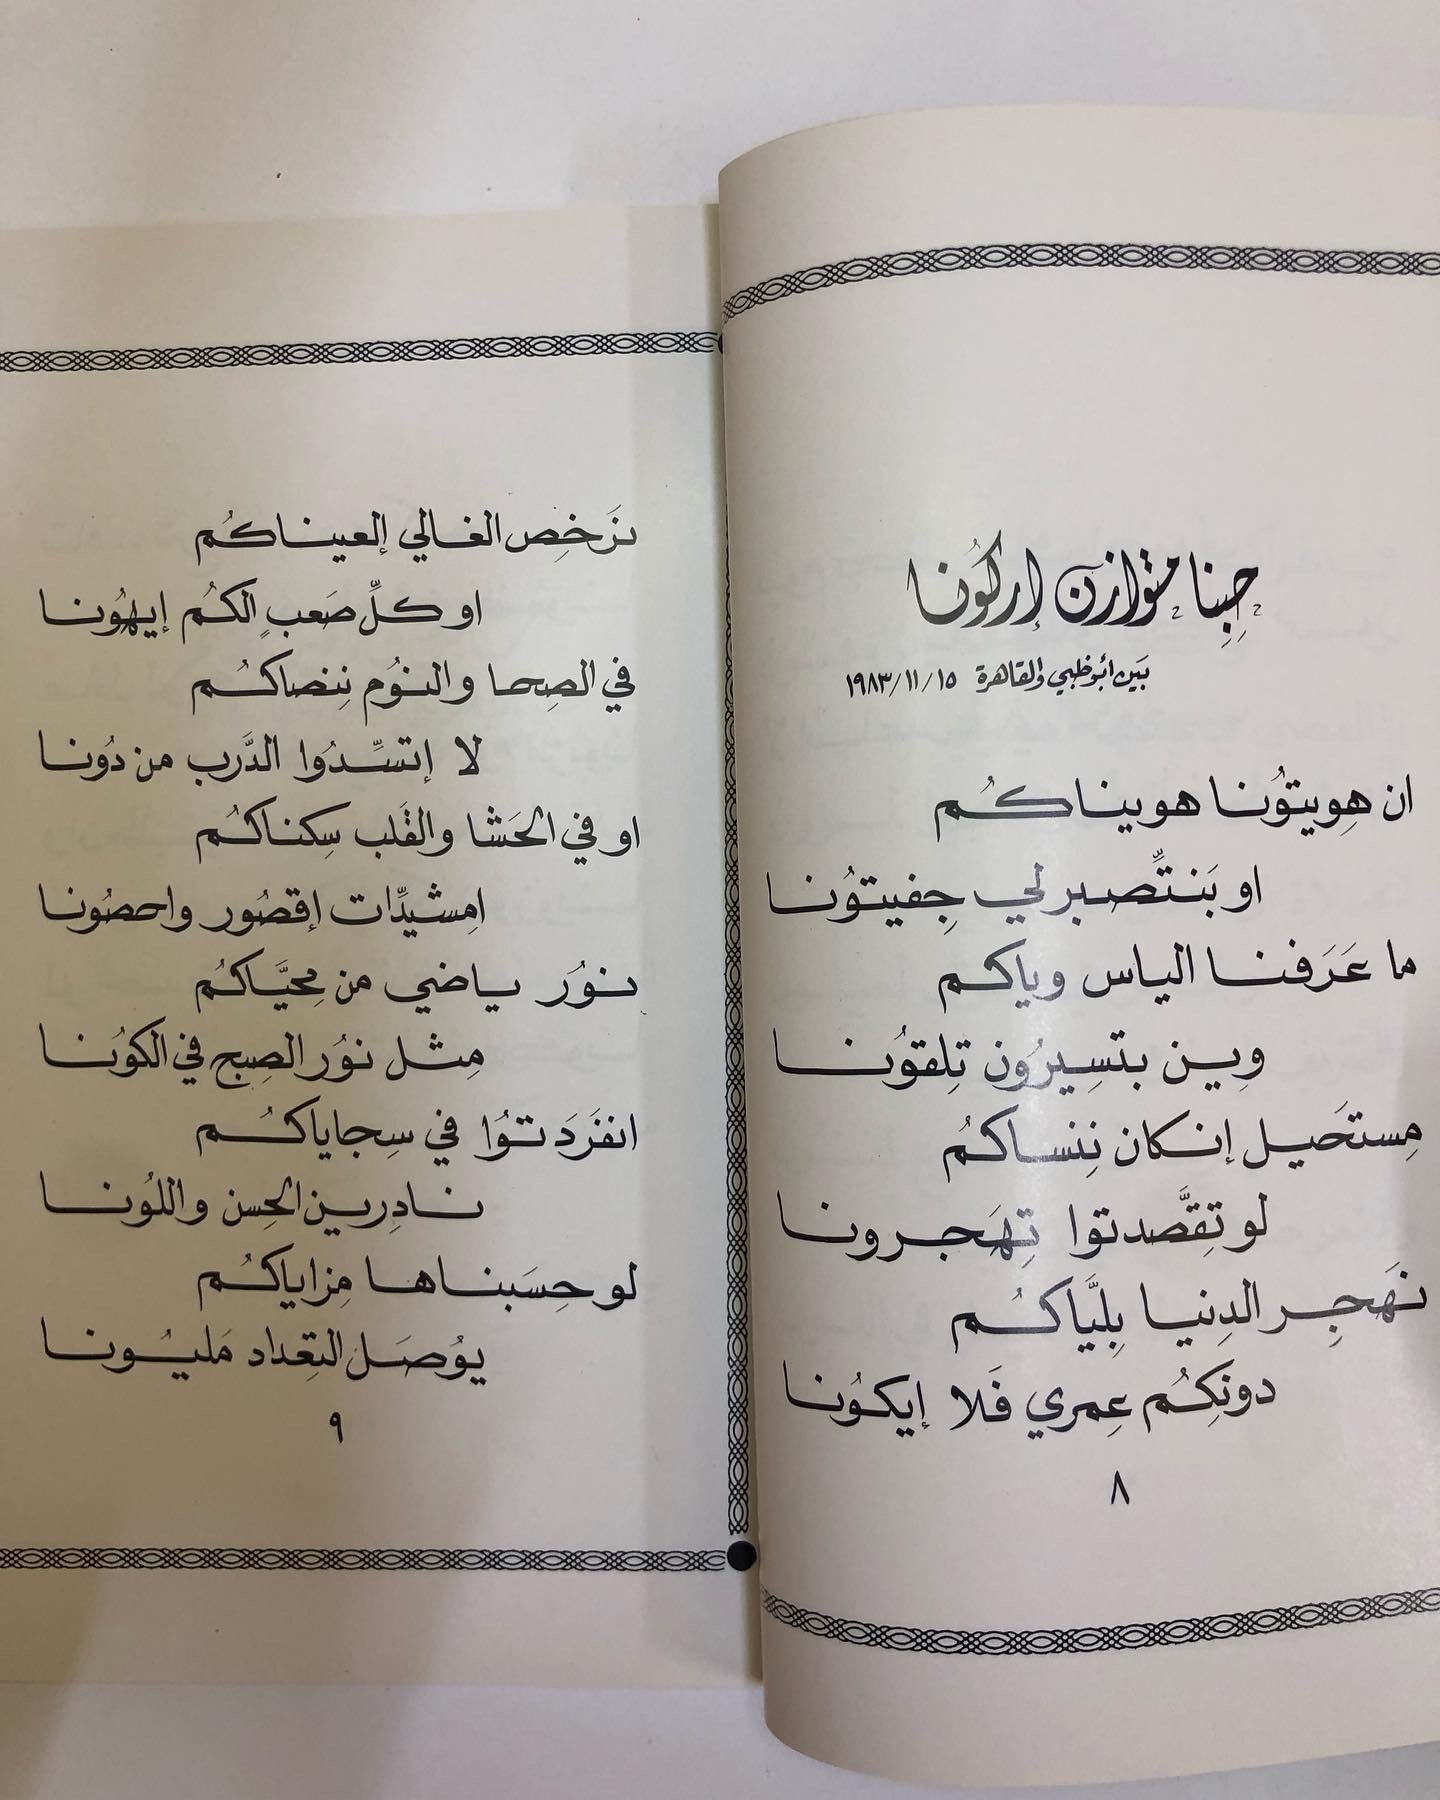 حِبِنا متوازن إركُونا
بَين أبوظبي والقاهرة ١٥/١١/١٩٨٣
ان هِويتوُنا هويناكُم
او بَنتِّصبر لي جِفيتوُنا
ما عَرَفنا الياس وياكم
وِين بتسِيرُون تِلقوُنا
مِستَحيل إنكان نِنساكُم
لو تِقصَّدتوا تِهَجرونا
نهَجِر الدِنيا بِليَّاكُم
دونِكُم عِمري فَلا إيكُونا
٨
نرَخِص الغالي إلعيناكُم
او كلِّ صَعبٍ الكُم إيهُونا
في الصِحا والنوُم نِنصاكُم
لا إتسِّدُوا الدَّرب من دُونا
او في الحَشا والقَلب سِكناكُم
امشيِّدات إقصُور واحصُونا
نوُر ياضي من مِحيَّاكُم
مِثل نوُر الصِبح في الكوُنا
انفَرَدتوُا في سِجاياكُم
نادِرين الحِسن واللوُنا
لو حِسَبناها مِزاياكُم
يوُصَل التِعداد مَليُونا
٩